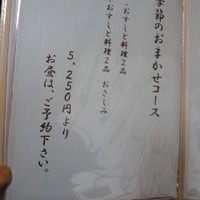 季節のおまかせコース
・おすしと料理2品 おさしみ
・おすしと料理2品
5、250円より
お昼は、ご予約下さい。